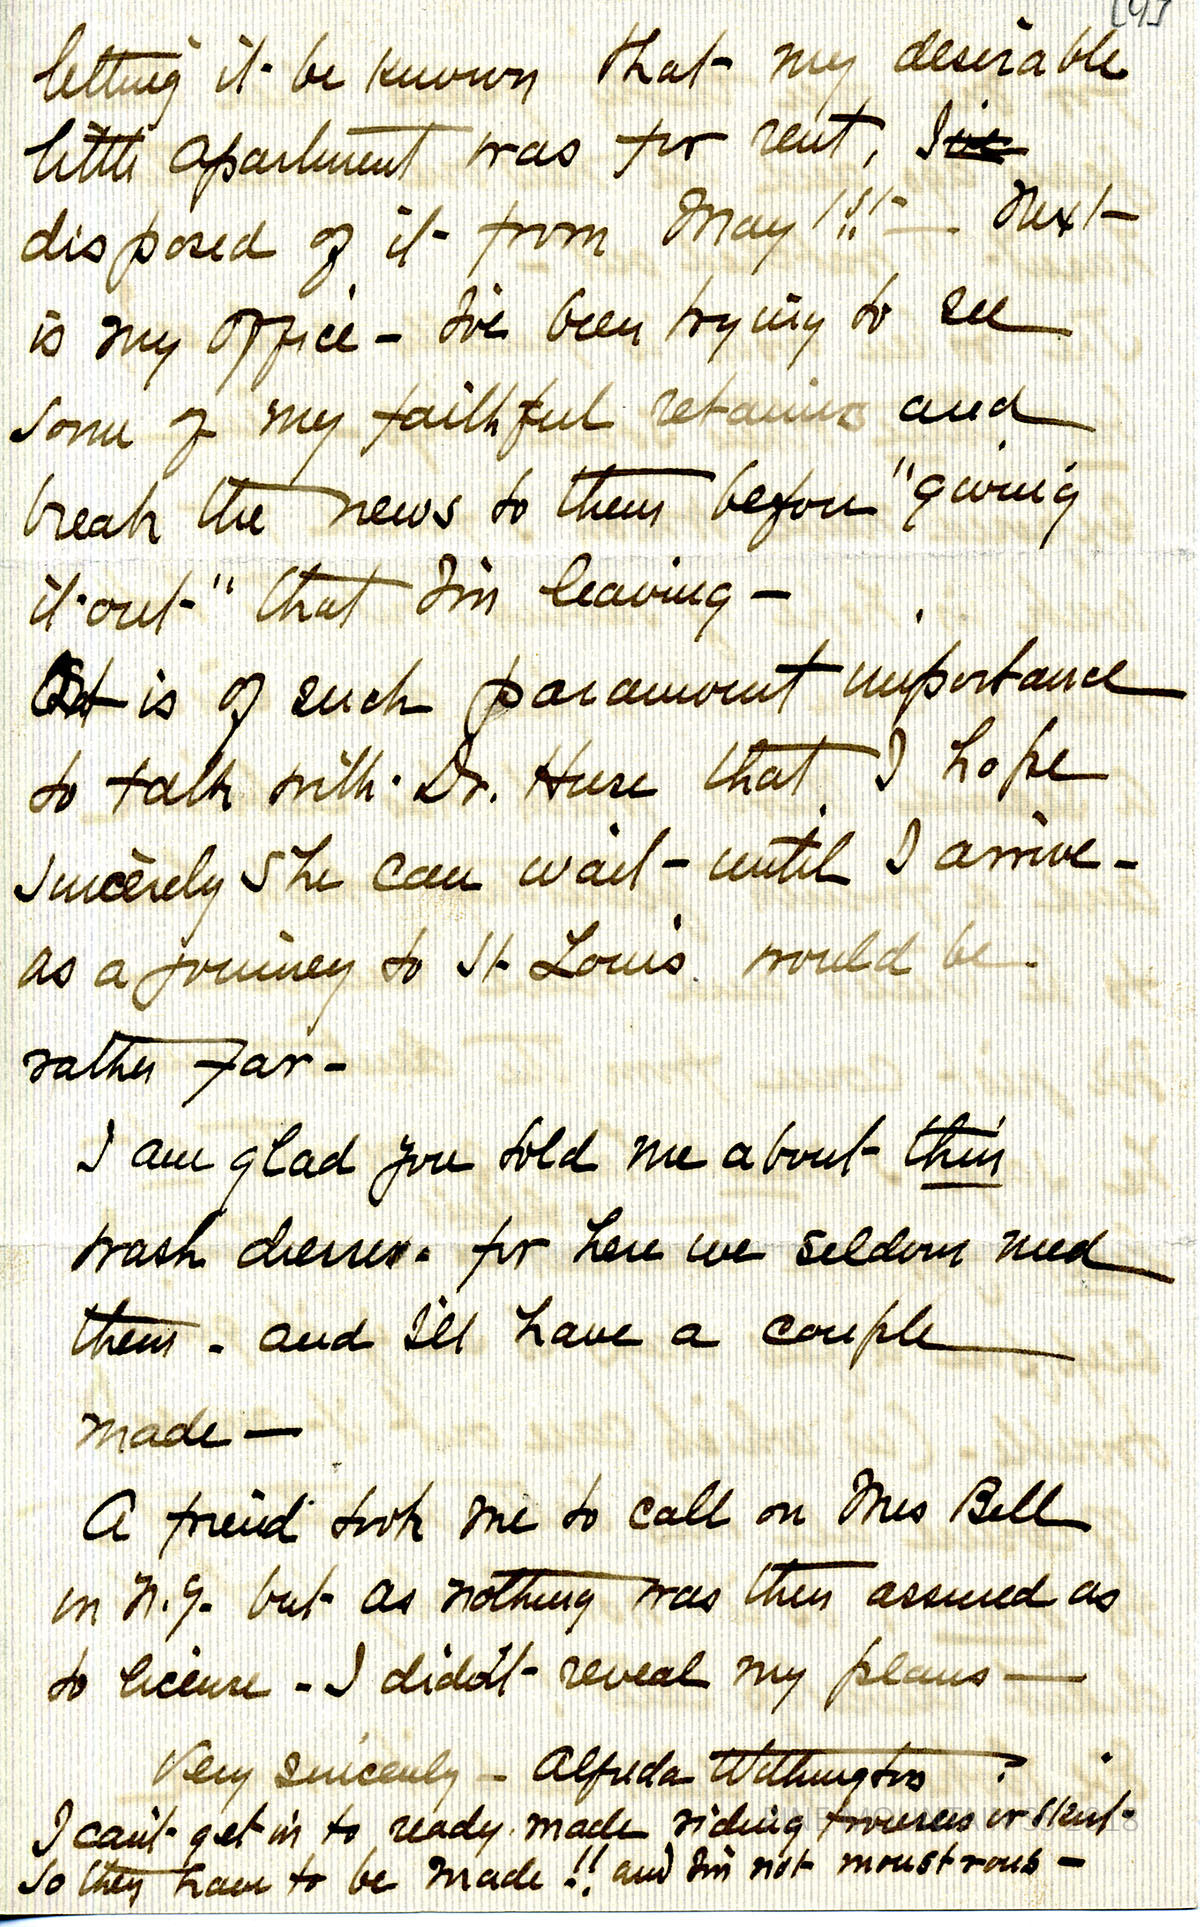 letting it be known that my desirable
little apartment was for rent, I've
disposed of it from May!!!— Next
is my office – I've been trying to see
some of my faithful retainers and
break the news to them before "giving
it out" that I'm leaving –
It is of such paramount importance
to talk with Dr. Huse that I hope
sincerely she can wait until I arrive –
as a journey to St Louis would be
rather far –
I am glad you told me about thin
wash dresses. for here we seldom need
them – and I'll have a couple
made —
A friend took me to call on Mrs Bell
in N.Y. but as nothing was then assured as
to license – I didn't reveal my plans —
Very sincerely – Alfreda Withington
I can't get in to ready made riding trousers or skirt
so they have to be made!! and I'm not monstrous –